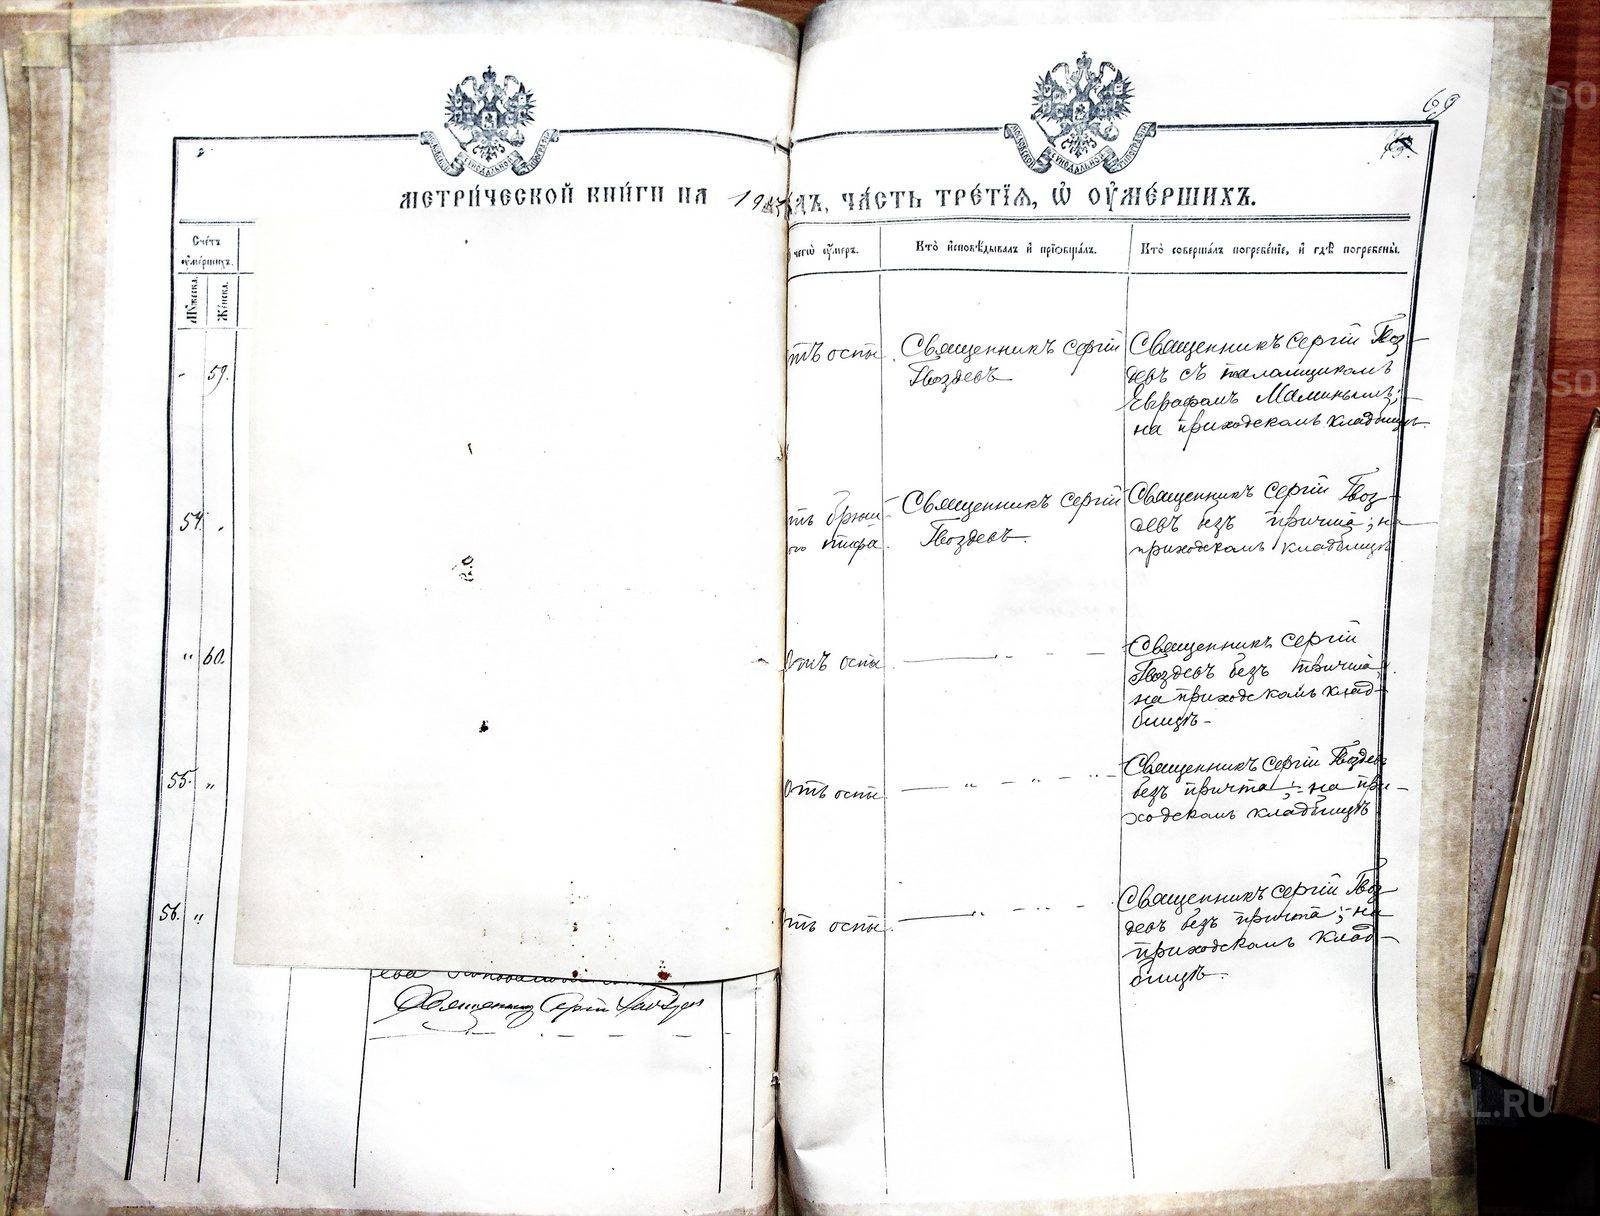 69
МЕТРИ́ЧЕСКОЙ КНИ́ГИ НА 19
ДЪ, ЧА́СТЬ ТРЕ́ТІѦ, Ѽ ОУ҆МЕ́РШИХЪ.
Сче́тъ
оу҆ме́ршихъ.
Же́нска.
чегѡ̀ оу҆́мер.
Кто̀ и҆сповѣ́дывалъ и҆ прїѡбща́лъ.
Кто̀ соверша́лъ погребе́нїе, и҆ гдѣ̀ погребены̀.
59.
отъ оспы
Священникъ Сергій
Гвоздевъ
Священникъ Сергій Гвоз-
девъ съ псаломщикомъ
Евграфомъ Маминымъ;
на приходскомъ кладбищѣ
54.
отъ брюш
ого тифа
Священникъ Сергій
Гвоздевъ.
Священникъ Сергій Гвоз-
девъ безъ причта; на
приходскомъ кладбищѣ
" 60.
Отъ оспы
Священникъ Сергій
Гвоздевъ безъ причта;
на приходскомъ клад-
бищѣ-
55. "
Отъ оспы
Священникъ Сергій Гвоздев
безъ причта; на при-
ходскомъ кладбищѣ
56. "
отъ оспы
Священникъ Сергій Гвоз
девъ безъ причта; на
приходскомъ клад-
бищѣ.
Священникъ Сергій Гвоздев